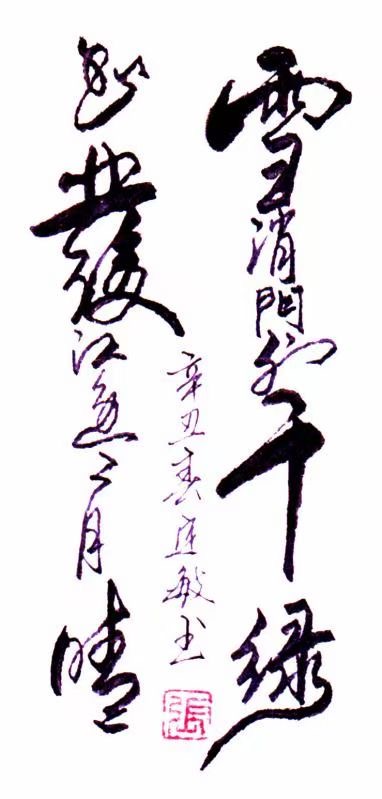 雪消門外千綠
花發江邊二月晴
辛丑春庭敏书
張